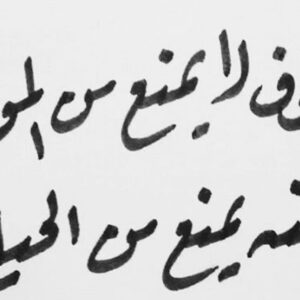 وف لا يمنع من المو
نه يمنع من الحيا